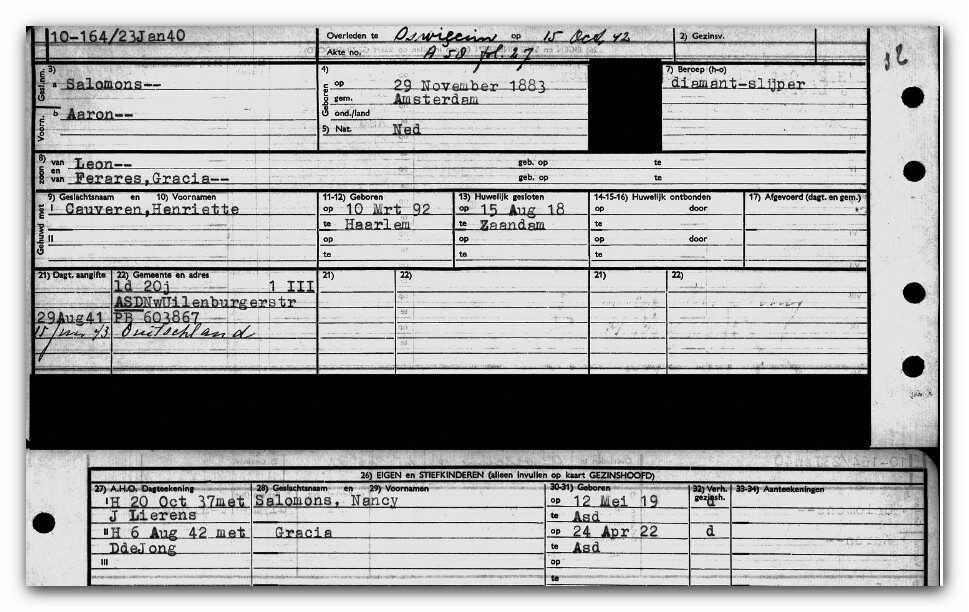 10-164/23Jan40
Overleden te Oswiecim op 15 Oct 42
2) Gezinsv.
Akte no. A 58 fol. 27
Gesl.nm. 3) a Salomons--
Voorn. b Aaron--
4) Geboren op 29 November 1883
gem. Amsterdam
ond./land
5) Nat. Ned
7) Beroep (h-o)
diamant-slijper
8) zoon van Leon-- geb. op te
en van Ferares,Gracia-- geb. op te
Gehuwd met 9) Geslachtsnaam en 10) Voornamen
I Cauveren,Henriette
II
11-12) Geboren
op 10 Mrt 92
te Haarlem
op
te
13) Huwelijk gesloten
op 15 Aug 18
te Zaandam
op
te
14-15-16) Huwelijk ontbonden
op door
te
op door
te
17) Afgevoerd (dagt. en gem.)
21) Dagt. aangifte 22) Gemeente en adres 21) 22) 21) 22)
ld 20j 1 III
ASDNwUilenburgerstr
29Aug41 PB 603867
15 43 Duitschland
26) EIGEN en STIEFKINDEREN (alleen invullen op kaart GEZINSHOOFD)
27) A.H.O. Dagteekening 28) Geslachtsnaam en 29) Voornamen 30-31) Geboren 32) Verh. gez.h. 33-34) Aanteekeningen
I H 20 Oct 37met Salomons, Nancy op 12 Mei 19 d
J Lierens te Asd
II H 6 Aug 42 met Gracia op 24 Apr 22 d
DdeJong te Asd
III op
te